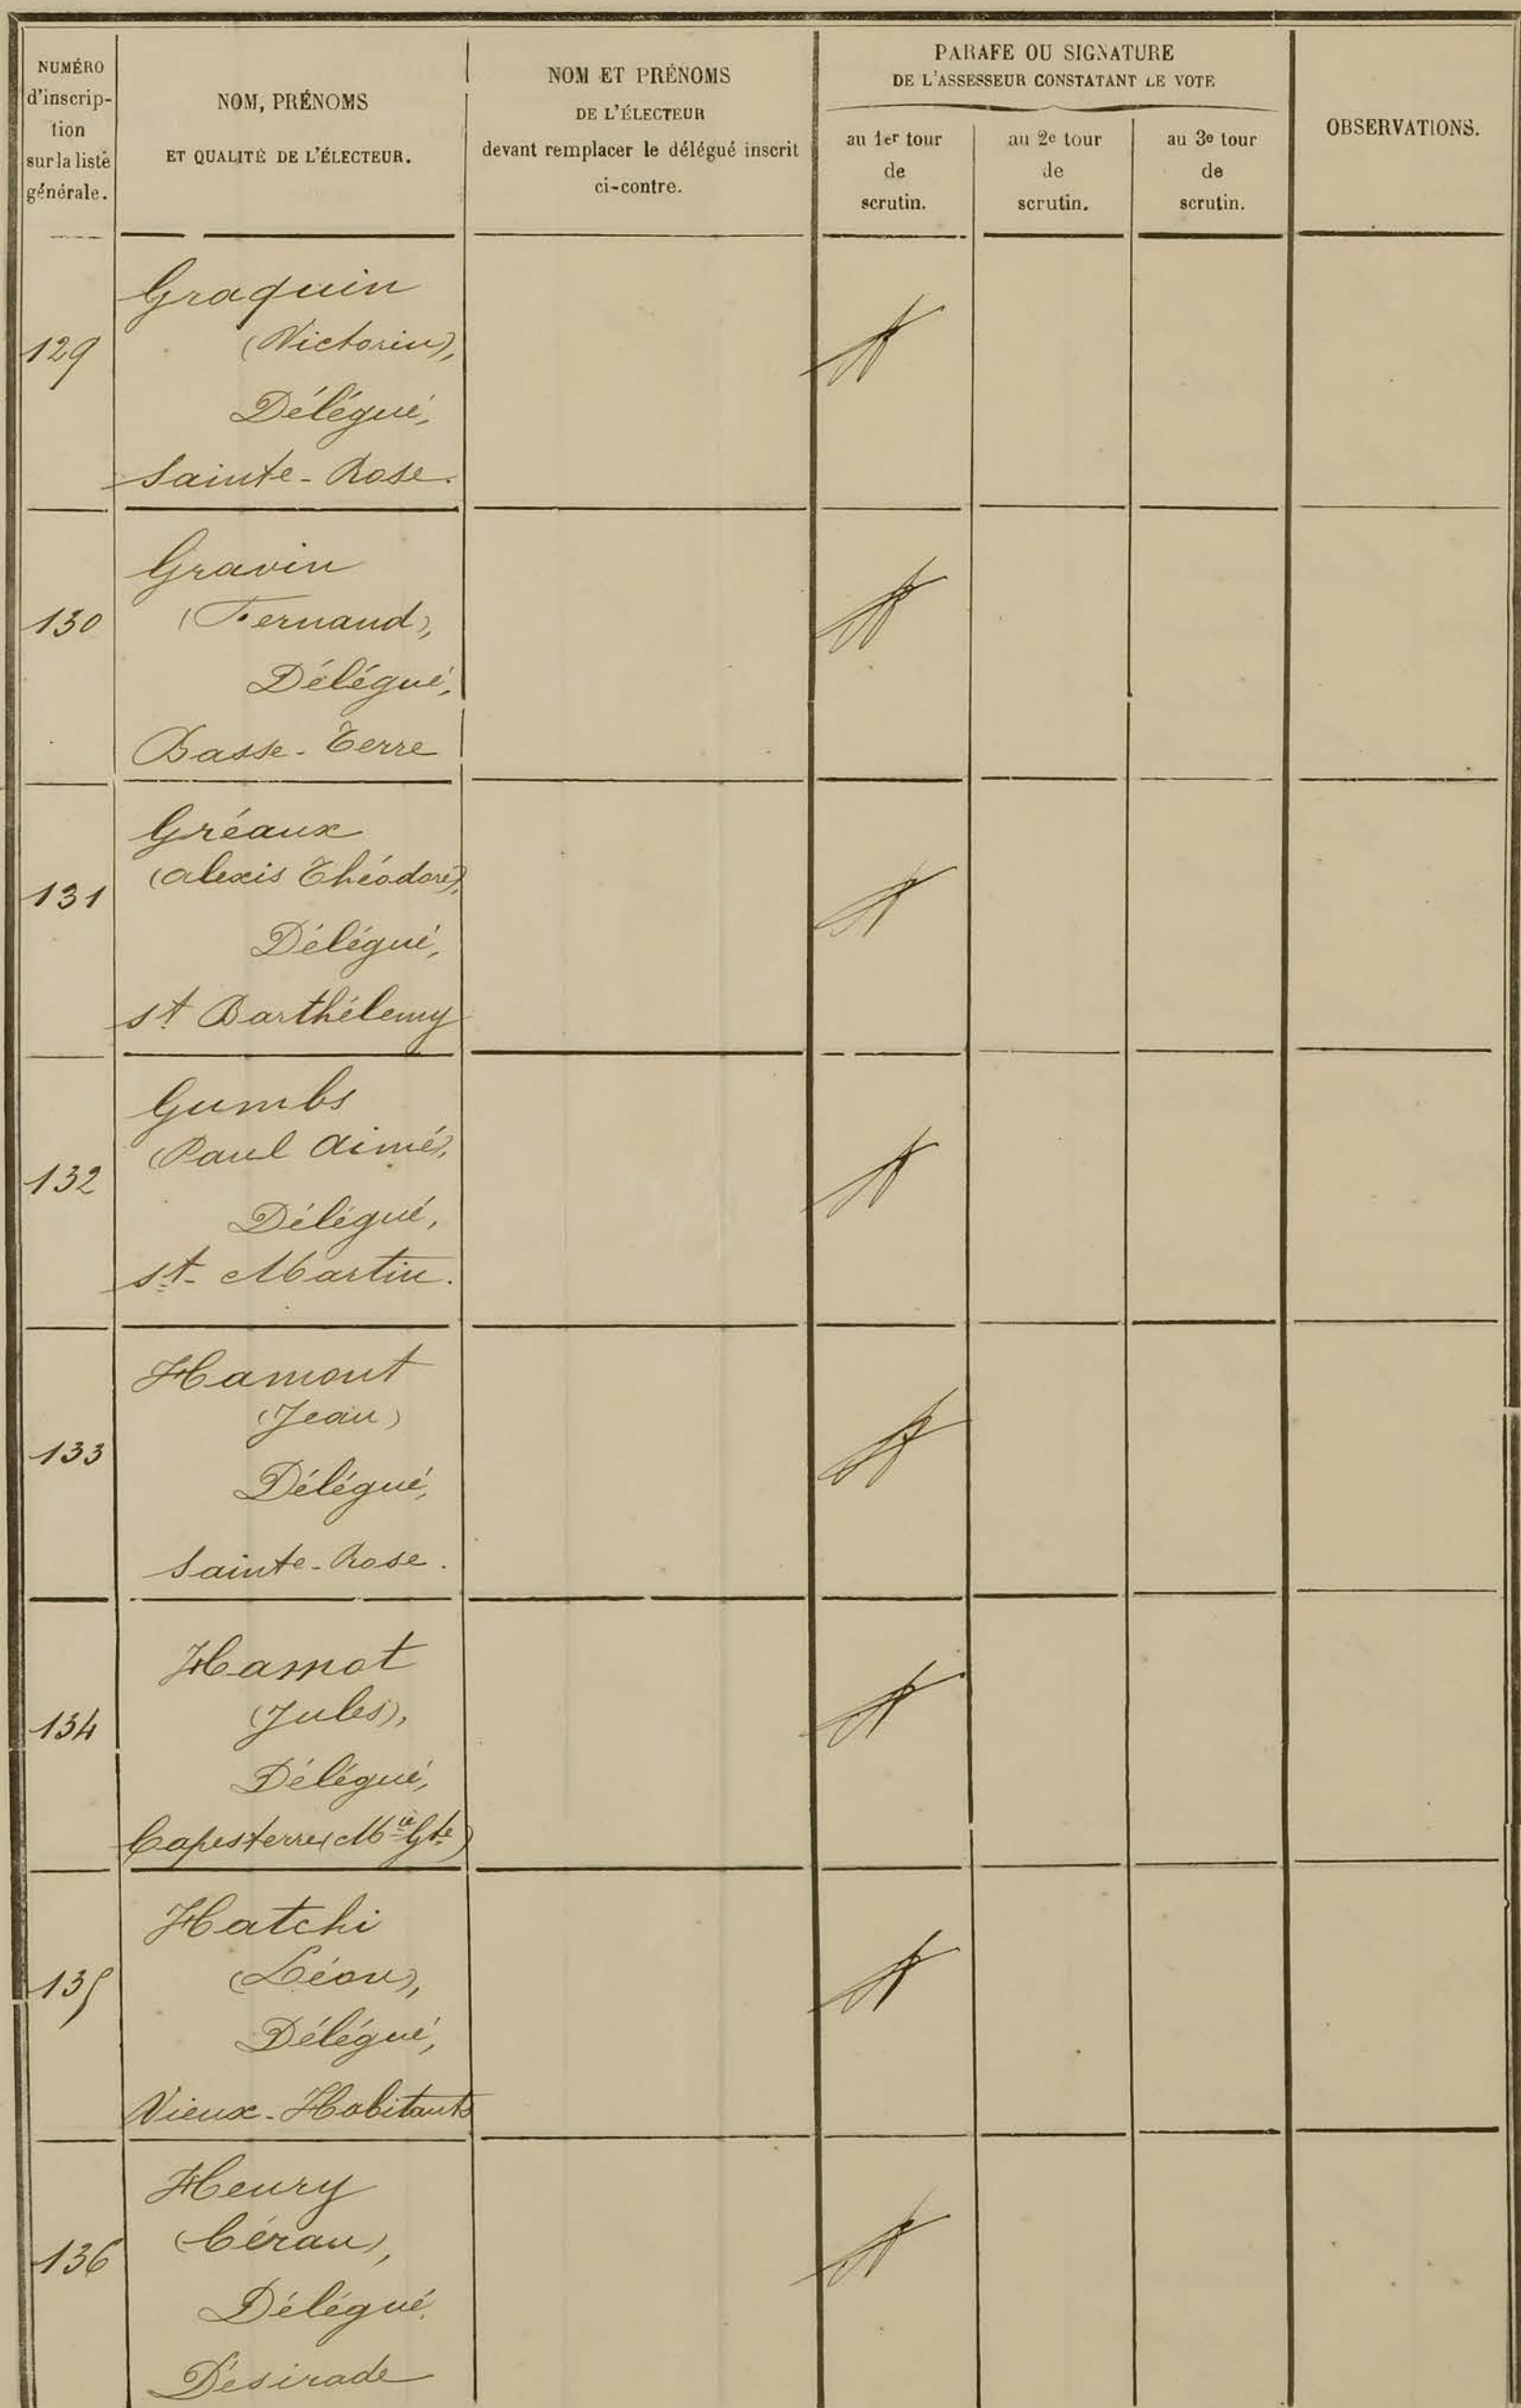 NUMÉRO
d'inscrip-
tion
sur la liste
générale.
NOM, PRÉNOMS
ET QUALITÉ DE L'ÉLECTEUR.
NOM ET PRÉNOMS
DE L'ÉLECTEUR
devant remplacer le délégué inscrit
ci-contre.
PARAFE OU SIGNATURE
DE L'ASSESSEUR CONSTATANT LE VOTE
au 1er tour
de
scrutin.
au 2e tour
de
scrutin.
au 3e tour
de
scrutin.
OBSERVATIONS.
129
Graquin
(Victorin),
Délégué,
Sainte-Rose.
130
Gravin
(Fernand),
Délégué,
Basse-Terre
131
Gréaux
(Alexis Théodore),
Délégué,
St Barthélemy
132
Gumbs
(Paul Aimé),
Délégué,
St-Martin.
133
Hamont
(Jean)
Délégué,
Sainte-Rose.
134
Hamot
(Jules),
Délégué,
Capesterre (Mie Gte)
135
Hatchi
(Léon),
Délégué,
Vieux-Habitants
136
Henry
(Céran),
Délégué.
Désirade